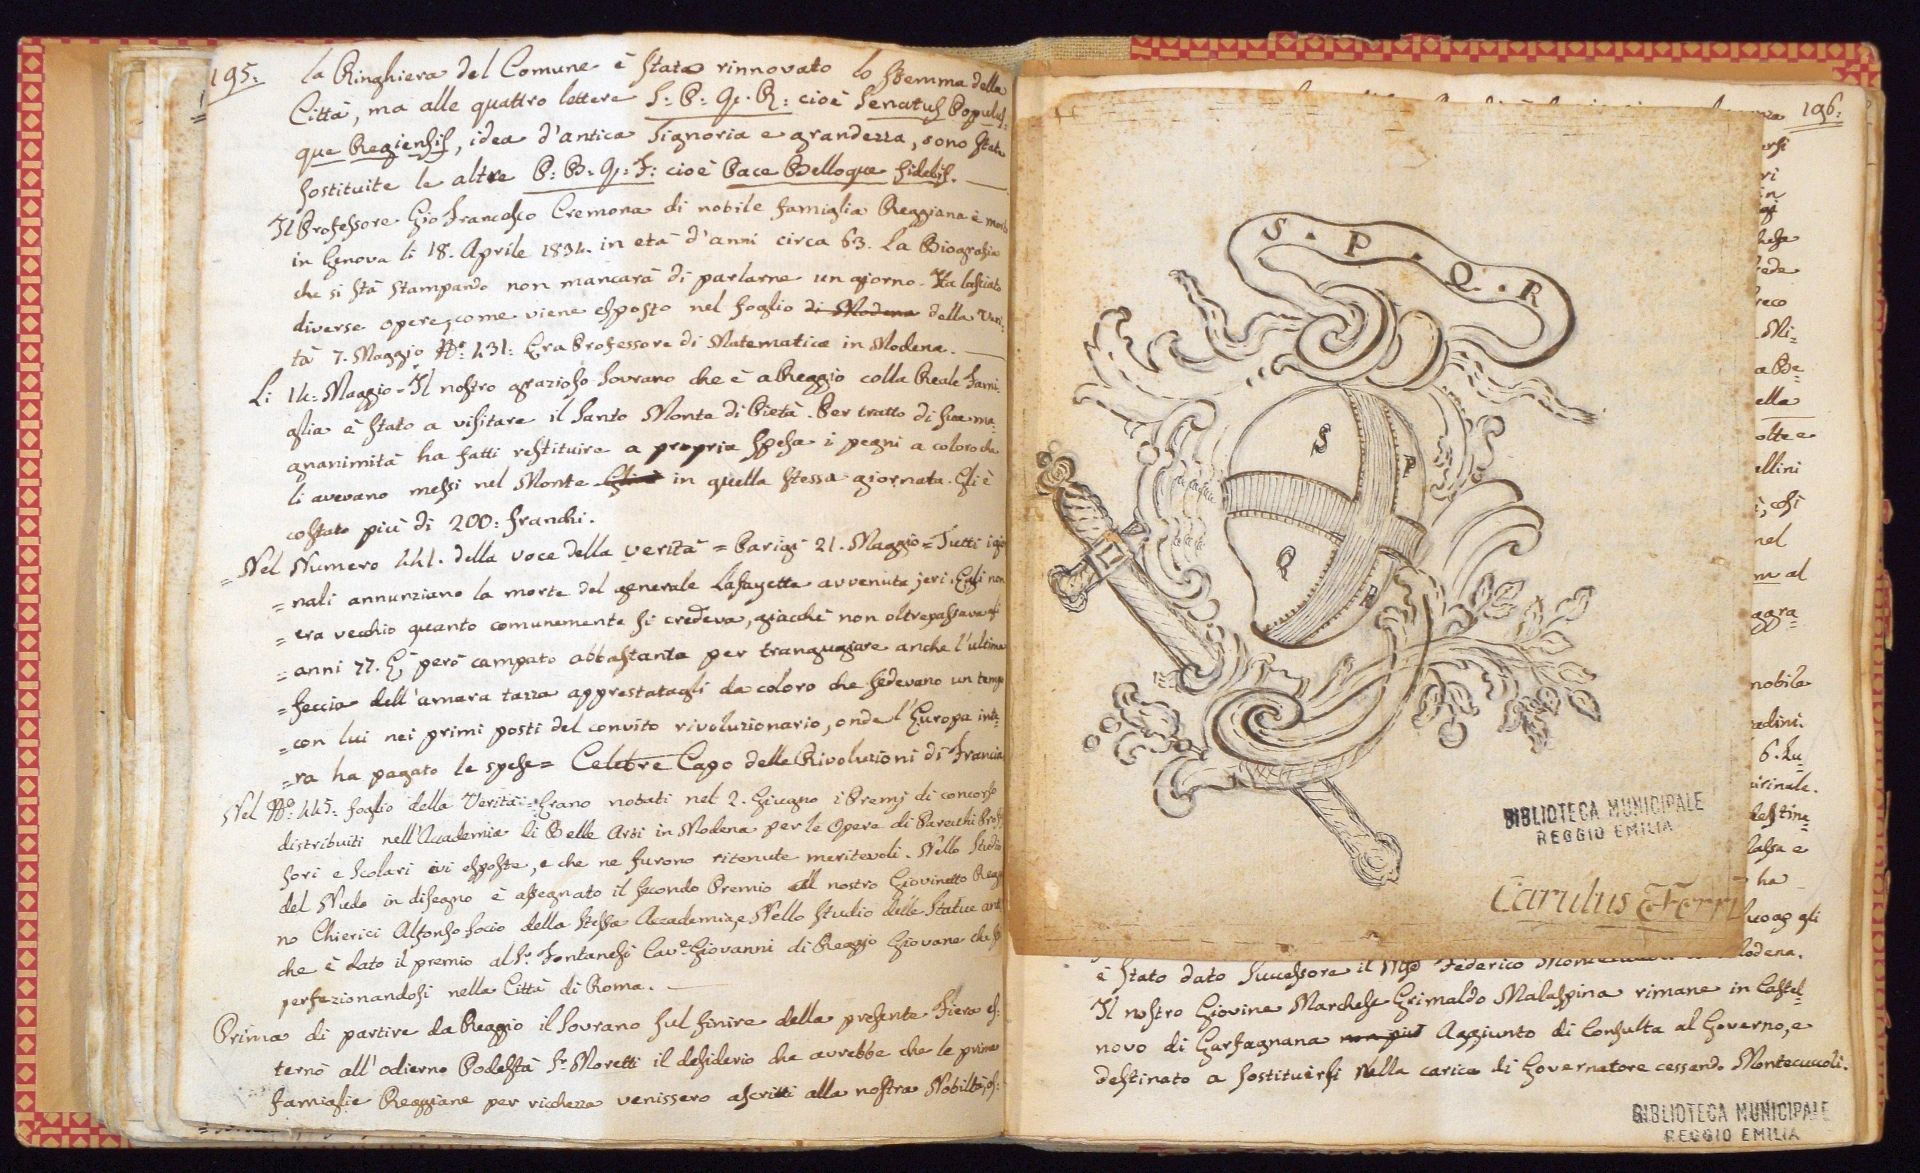 195:
la Ringhiera del Comune è stato rinnovato lo stemma della
Città, ma alle quattro lettere S: P: Q: R: cioè Senatus Populus=
que Regiensis, idea d'antica Signoria e grandezza, sono state
sostituite le altre P: B: Q: F: cioè Pace Belloque fidelis.
Il Professore Gio Francesco Cremona di nobile famiglia Reggiana è morto
in Genova li 18. Aprile 1834. in età d'anni circa 63. La Biografia
che si stà stampando non mancarà di parlarne un giorno. Ha lasciato
diverse opere, come viene esposto nel foglio di Modena della Veri=
tà 7. Maggio No: 431: Era Professore di Matematica in Modena.
Li 14: Maggio = Il nostro grazioso Sovrano che è a Reggio colla Reale Fami=
glia è stato a visitare il Santo Monte di Pietà. Per tratto di sua ma=
gnanimità ha fatti restituire a propria spesa i pegni a coloro che
li avevano messi nel Monte Gli è in quella stessa giornata. Gli è
costato più di 200: franchi.
= Nel Numero 441. della voce della verità = Parigi 21. Maggio = Tutti i gior
= nali annunziano la morte del generale Lafayette avvenuta jeri. Egli non
= era vecchio quanto comunemente si credeva, giacchè non oltrepassava gli
= anni 77. È però campato abbastanza per trangugiare anche l'ultima
= feccia dell'amara tazza apprestatagli da coloro che sedevano un tempo
= con lui nei primi posti del convito rivoluzionario, onde l'Europa inte=
= ra ha pagato le spese = Celebre Capo delle Rivoluzioni di Francia
Nel No: 445: foglio della Verità = Erano notati nel 2. Giugno i Premj di concorso
distribuiti nell'Accademia di Belle Arti in Modena per le Opere di Parecchi Profes
sori e Scolari ivi esposte, e che ne furono ritenute meritevoli. Nello Studio
del Nudo in disegno è assegnato il secondo Premio al nostro Giovinetto Reggia
no Chierici Alfonso socio della stessa Accademia, e Nello Studio delle Statue anti
che è dato il premio al Sr. Fontanesi Cave. Giovanni di Reggio Giovane che si
perfezionandosi nella Città di Roma.
Prima di partire da Reggio il Sovrano sul finire della presente Fiera es=
ternò all'odierno Podestà Sr. Moretti il desiderio che avrebbe che le prime
famiglie Reggiane per ricchezza venissero ascritti alla nostra Nobiltà,
196:
S. P. Q. R
S
P
Q
R
BIBLIOTECA MUNICIPALE
REGGIO EMILIA
Carulus Ferri
è stato dato Successore il Federico
Il nostro Giovine Marchese Grimaldo Malaspina rimane in Castel=
novo di Garfagnana non più Aggiunto di Consulta al Governo, e
destinato a sostituirsi nella carica di Governatore cessando Montecuccoli.
BIBLIOTECA MUNICIPALE
REGGIO EMILIA